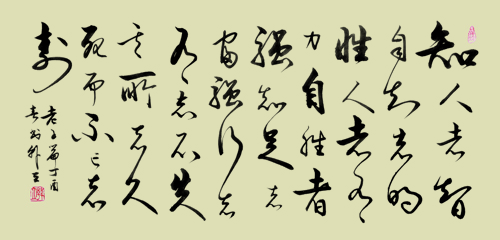 知人者智
自知者明
胜人者有
力自胜者
强知足者
富强行者
有志不失
其所者久
死而不亡者
寿
老子篇丁酉
春